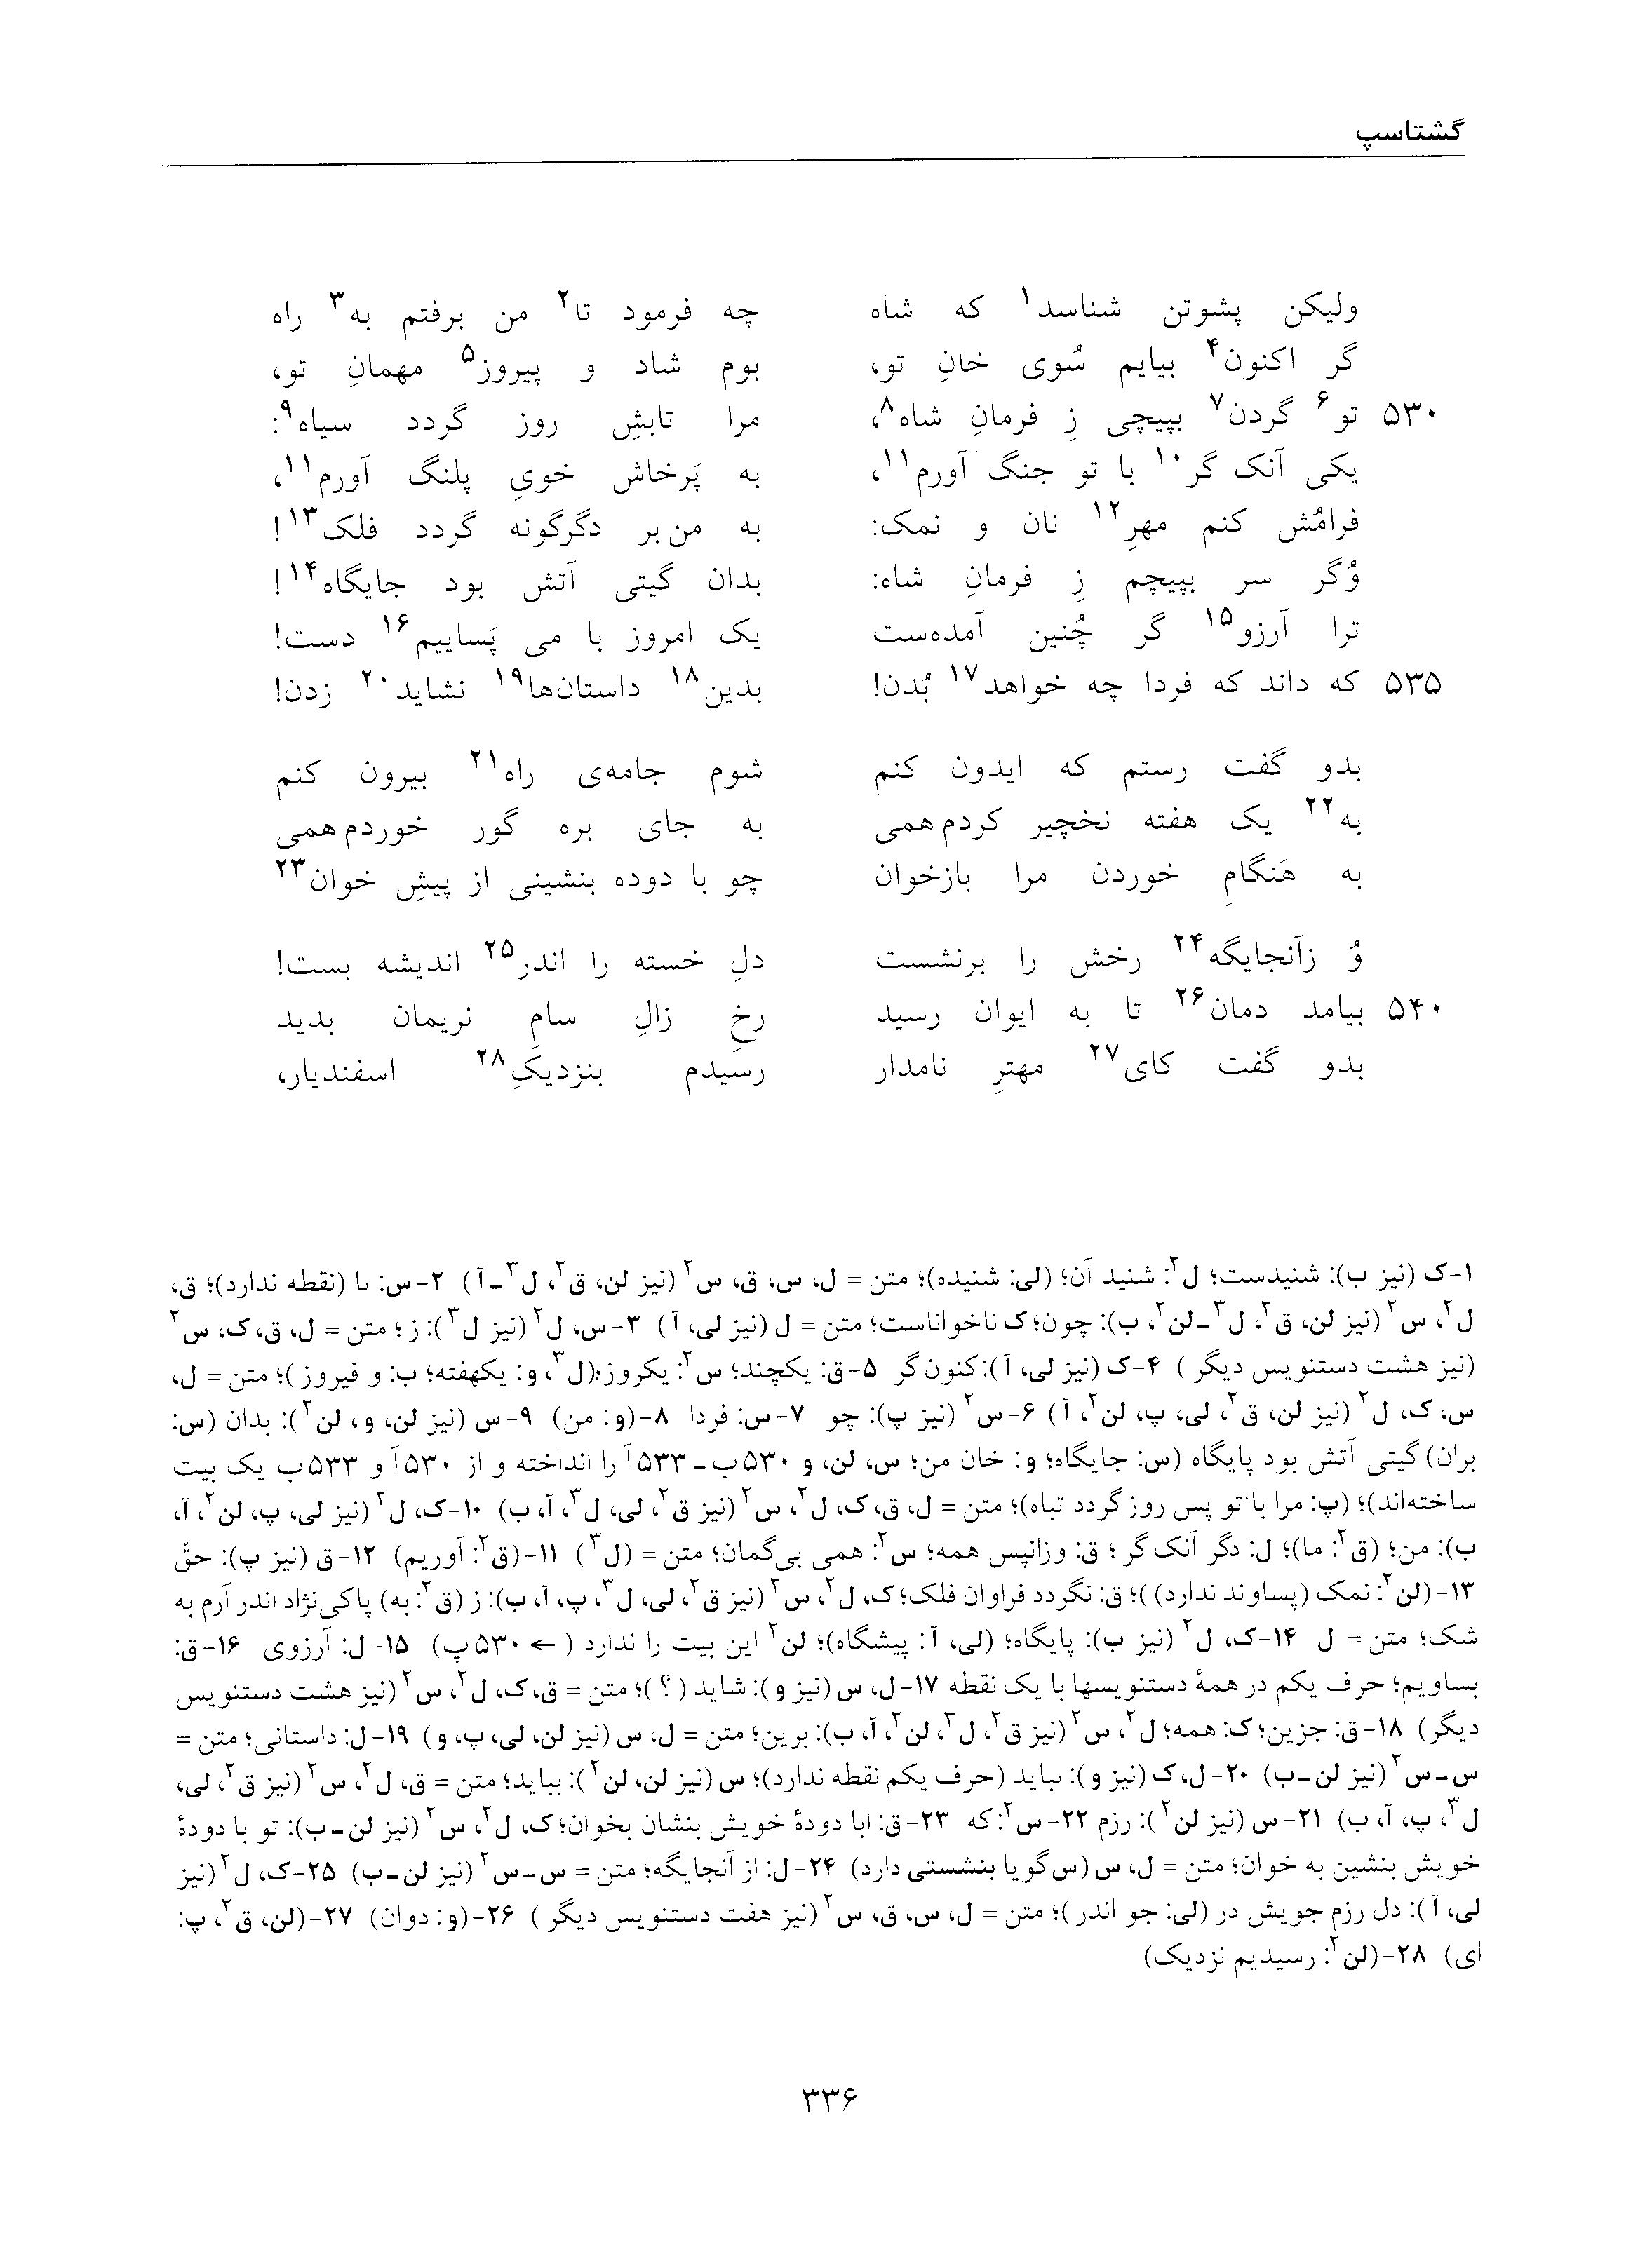 گشتاسپ
ولیکن پشوتن شناسد۱ که شاه چه فرمود تا۲ من برفتم به۳ راه
گر اکنون۴ بیایم سُوی خانِ تو، بوم شاد و پیروز۵ مهمانِ تو،
۵۳۰ تو۶ گردن۷ بپیچی زِ فرمانِ شاه۸، مرا تابشِ روز گردد سیاه۹:
یکی آنک گر۱۰ با تو جنگ آورم۱۱، به پَرخاش خویِ پلنگ آورم۱۱،
فرامُش کنم مهرِ۱۲ نان و نمک: به من‌بر دگرگونه گردد فلک۱۳!
وُگر سر بپیچم زِ فرمانِ شاه: بدان گیتی آتش بود جایگاه۱۴!
ترا آرزو۱۵ گر چُنین آمده‌ست یک امروز با می پَساییم۱۶ دست!
۵۳۵ که داند که فردا چه خواهد۱۷ بُدن! بدین۱۸ داستان‌ها۱۹ نشاید۲۰ زدن!
بدو گفت رستم که ایدون کنم شوم جامه‌ی راه۲۱ بیرون کنم
به۲۲ یک هفته نخچیر کردم همی به جای بره گور خوردم همی
به هَنگامِ خوردن مرا بازخوان چو با دوده بنشینی از پیشِ خوان۲۳
وُ زآنجایگه۲۴ رخش را برنشست دلِ خسته را اندر۲۵ اندیشه بست!
۵۴۰ بیامد دمان۲۶ تا به ایوان رسید رخِ زالِ سامِ نریمان بدید
بدو گفت کای۲۷ مهترِ نامدار رسیدم بنزدیکِ۲۸ اسفندیار،
۱-ک (نیز ب): شنیدست؛ ل۲: شنید آن؛ (لی: شنیده)؛ متن = ل، س، ق، س۲ (نیز لن، ق۲، ل۳ـآ) ۲-س: ىا (نقطه ندارد)؛ ق،
ل۲، س۲ (نیز لن، ق۲، ل۳ـلن۲، ب): چون؛ ک ناخواناست؛ متن = ل (نیز لی، آ) ۳-س، ل۲ (نیز ل۳): ز؛ متن = ل، ق، ک، س۲
(نیز هشت دستنویس دیگر) ۴-ک (نیز لی، آ): کنون گر ۵-ق: یکچند؛ س۲: یکروز؛ (ل۳، و: یکهفته؛ ب: و فیروز)؛ متن = ل،
س، ک، ل۲ (نیز لن، ق۲، لی، پ، لن۲، آ) ۶-س۲ (نیز پ): چو ۷-س: فردا ۸-(و: من) ۹-س (نیز لن، و، لن۲): بدان (س:
بران) گیتی آتش بود پایگاه (س: جایگاه؛ و: خان من؛ س، لن، و ۵۳۰ب ـ ۵۳۳آ را انداخته و از ۵۳۰آ و ۵۳۳ب یک بیت
ساخته‌اند)؛ (پ: مرا با تو پس روز گردد تباه)؛ متن = ل، ق، ک، ل۲، س۲ (نیز ق۲، لی، ل۳، آ، ب) ۱۰-ک، ل۲ (نیز لی، پ، لن۲، آ،
ب): من؛ (ق۲: ما)؛ ل: دگر آنک گر؛ ق: وزانپس همه؛ س۲: همی بی‌گمان؛ متن = (ل۳) ۱۱-(ق۲: آوریم) ۱۲-ق (نیز پ): حقّ
۱۳-(لن۲: نمک (پساوند ندارد))؛ ق: نگردد فراوان فلک؛ ک، ل۲، س۲ (نیز ق۲، لی، ل۳، پ، آ، ب): ز (ق۲: به) پاکی نژاد اندر آرم به
شک؛ متن = ل ۱۴-ک، ل۲ (نیز ب): پایگاه؛ (لی، آ: پیشگاه)؛ لن۲ این بیت را ندارد (← ۵۳۰پ) ۱۵-ل: آرزوی ۱۶-ق:
بساویم؛ حرف یکم در همهٔ دستنویسها با یک نقطه ۱۷-ل، س (نیز و): شاید (؟)؛ متن = ق، ک، ل۲، س۲ (نیز هشت دستنویس
دیگر) ۱۸-ق: جزین؛ ک: همه؛ ل۲، س۲ (نیز ق۲، ل۳، لن۲، آ، ب): برین؛ متن = ل، س (نیز لن، لی، پ، و) ۱۹-ل: داستانی؛ متن =
س ـ س۲ (نیز لن ـ ب) ۲۰-ل، ک (نیز و): ىباید (حرف یکم نقطه ندارد)؛ س (نیز لن، لن۲): بباید؛ متن = ق، ل۲، س۲ (نیز ق۲، لی،
ل۳، پ، آ، ب) ۲۱-س (نیز لن۲): رزم ۲۲-س۲: که ۲۳-ق: ابا دودهٔ خویش بنشان بخوان؛ ک، ل۲، س۲ (نیز لن ـ ب): تو با دودهٔ
خویش بنشین به خوان؛ متن = ل، س (س گویا بنشستی دارد) ۲۴-ل: از آنجایگه؛ متن = س ـ س۲ (نیز لن ـ ب) ۲۵-ک، ل۲ (نیز
لی، آ): دل رزم جویش در (لی: جو اندر)؛ متن = ل، س، ق، س۲ (نیز هفت دستنویس دیگر) ۲۶-(و: دوان) ۲۷-(لن، ق۲، پ:
ای) ۲۸-(لن۲: رسیدیم نزدیک)
۳۳۶